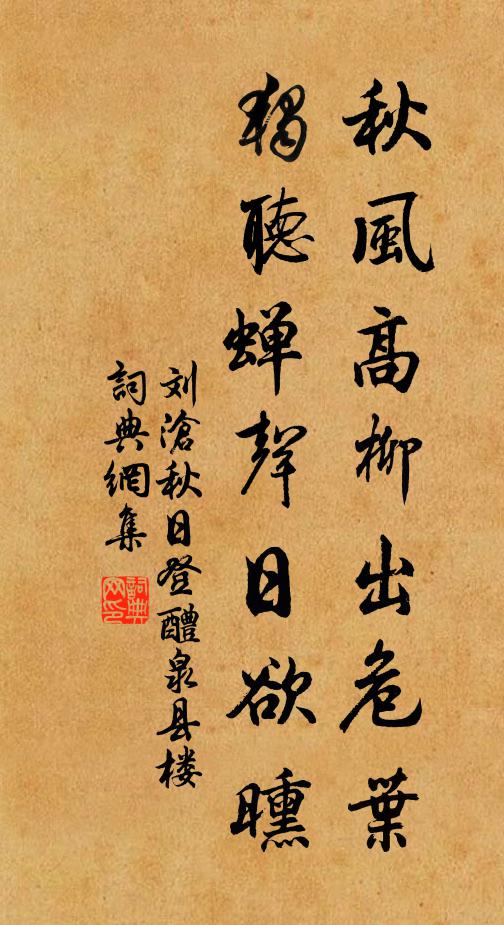 秋風高柳出危葉
獨聽蝉聲日欲曛
刘滄秋日登醴泉县楼
詞典網集
詞典网印